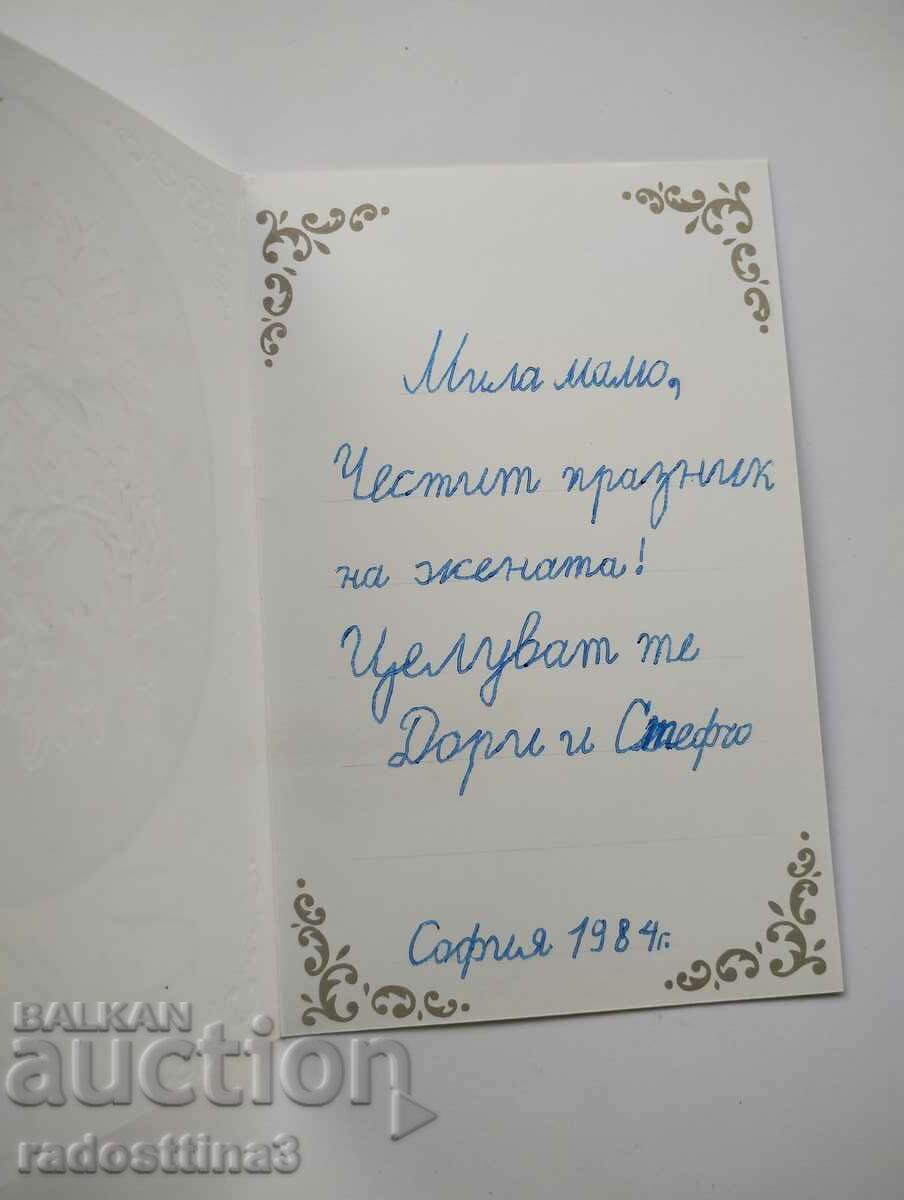 Мила мамо,
Честит празник
на жената!
Целуват те
Дори и Стефчо
София 1984г.
BALKAN
auction
radosttina3